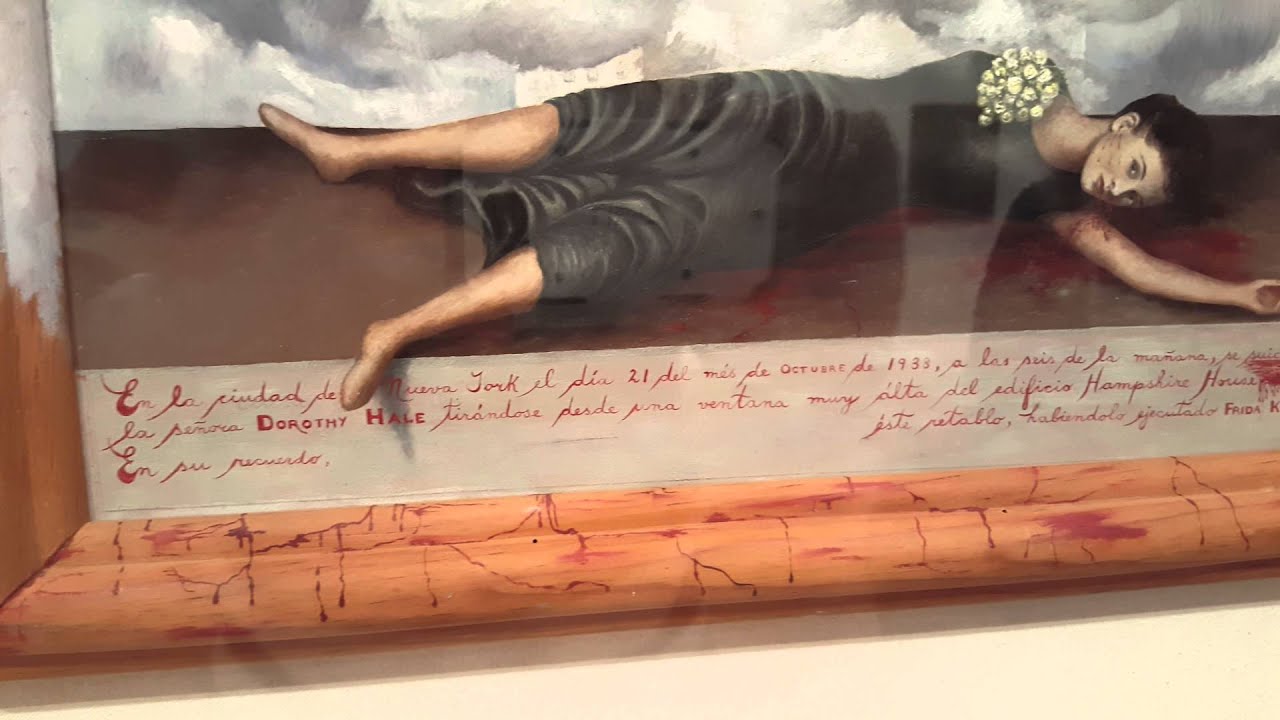 En la ciudad de Nueva York el día 21 del més de OCTUBRE de 1938, a las seis de la mañana, se suic
la señora DOROTHY HALE tirándose desde una ventana muy álta del edificio Hampshire House
En su recuerdo, éste retablo, habiendolo ejecutado FRIDA K